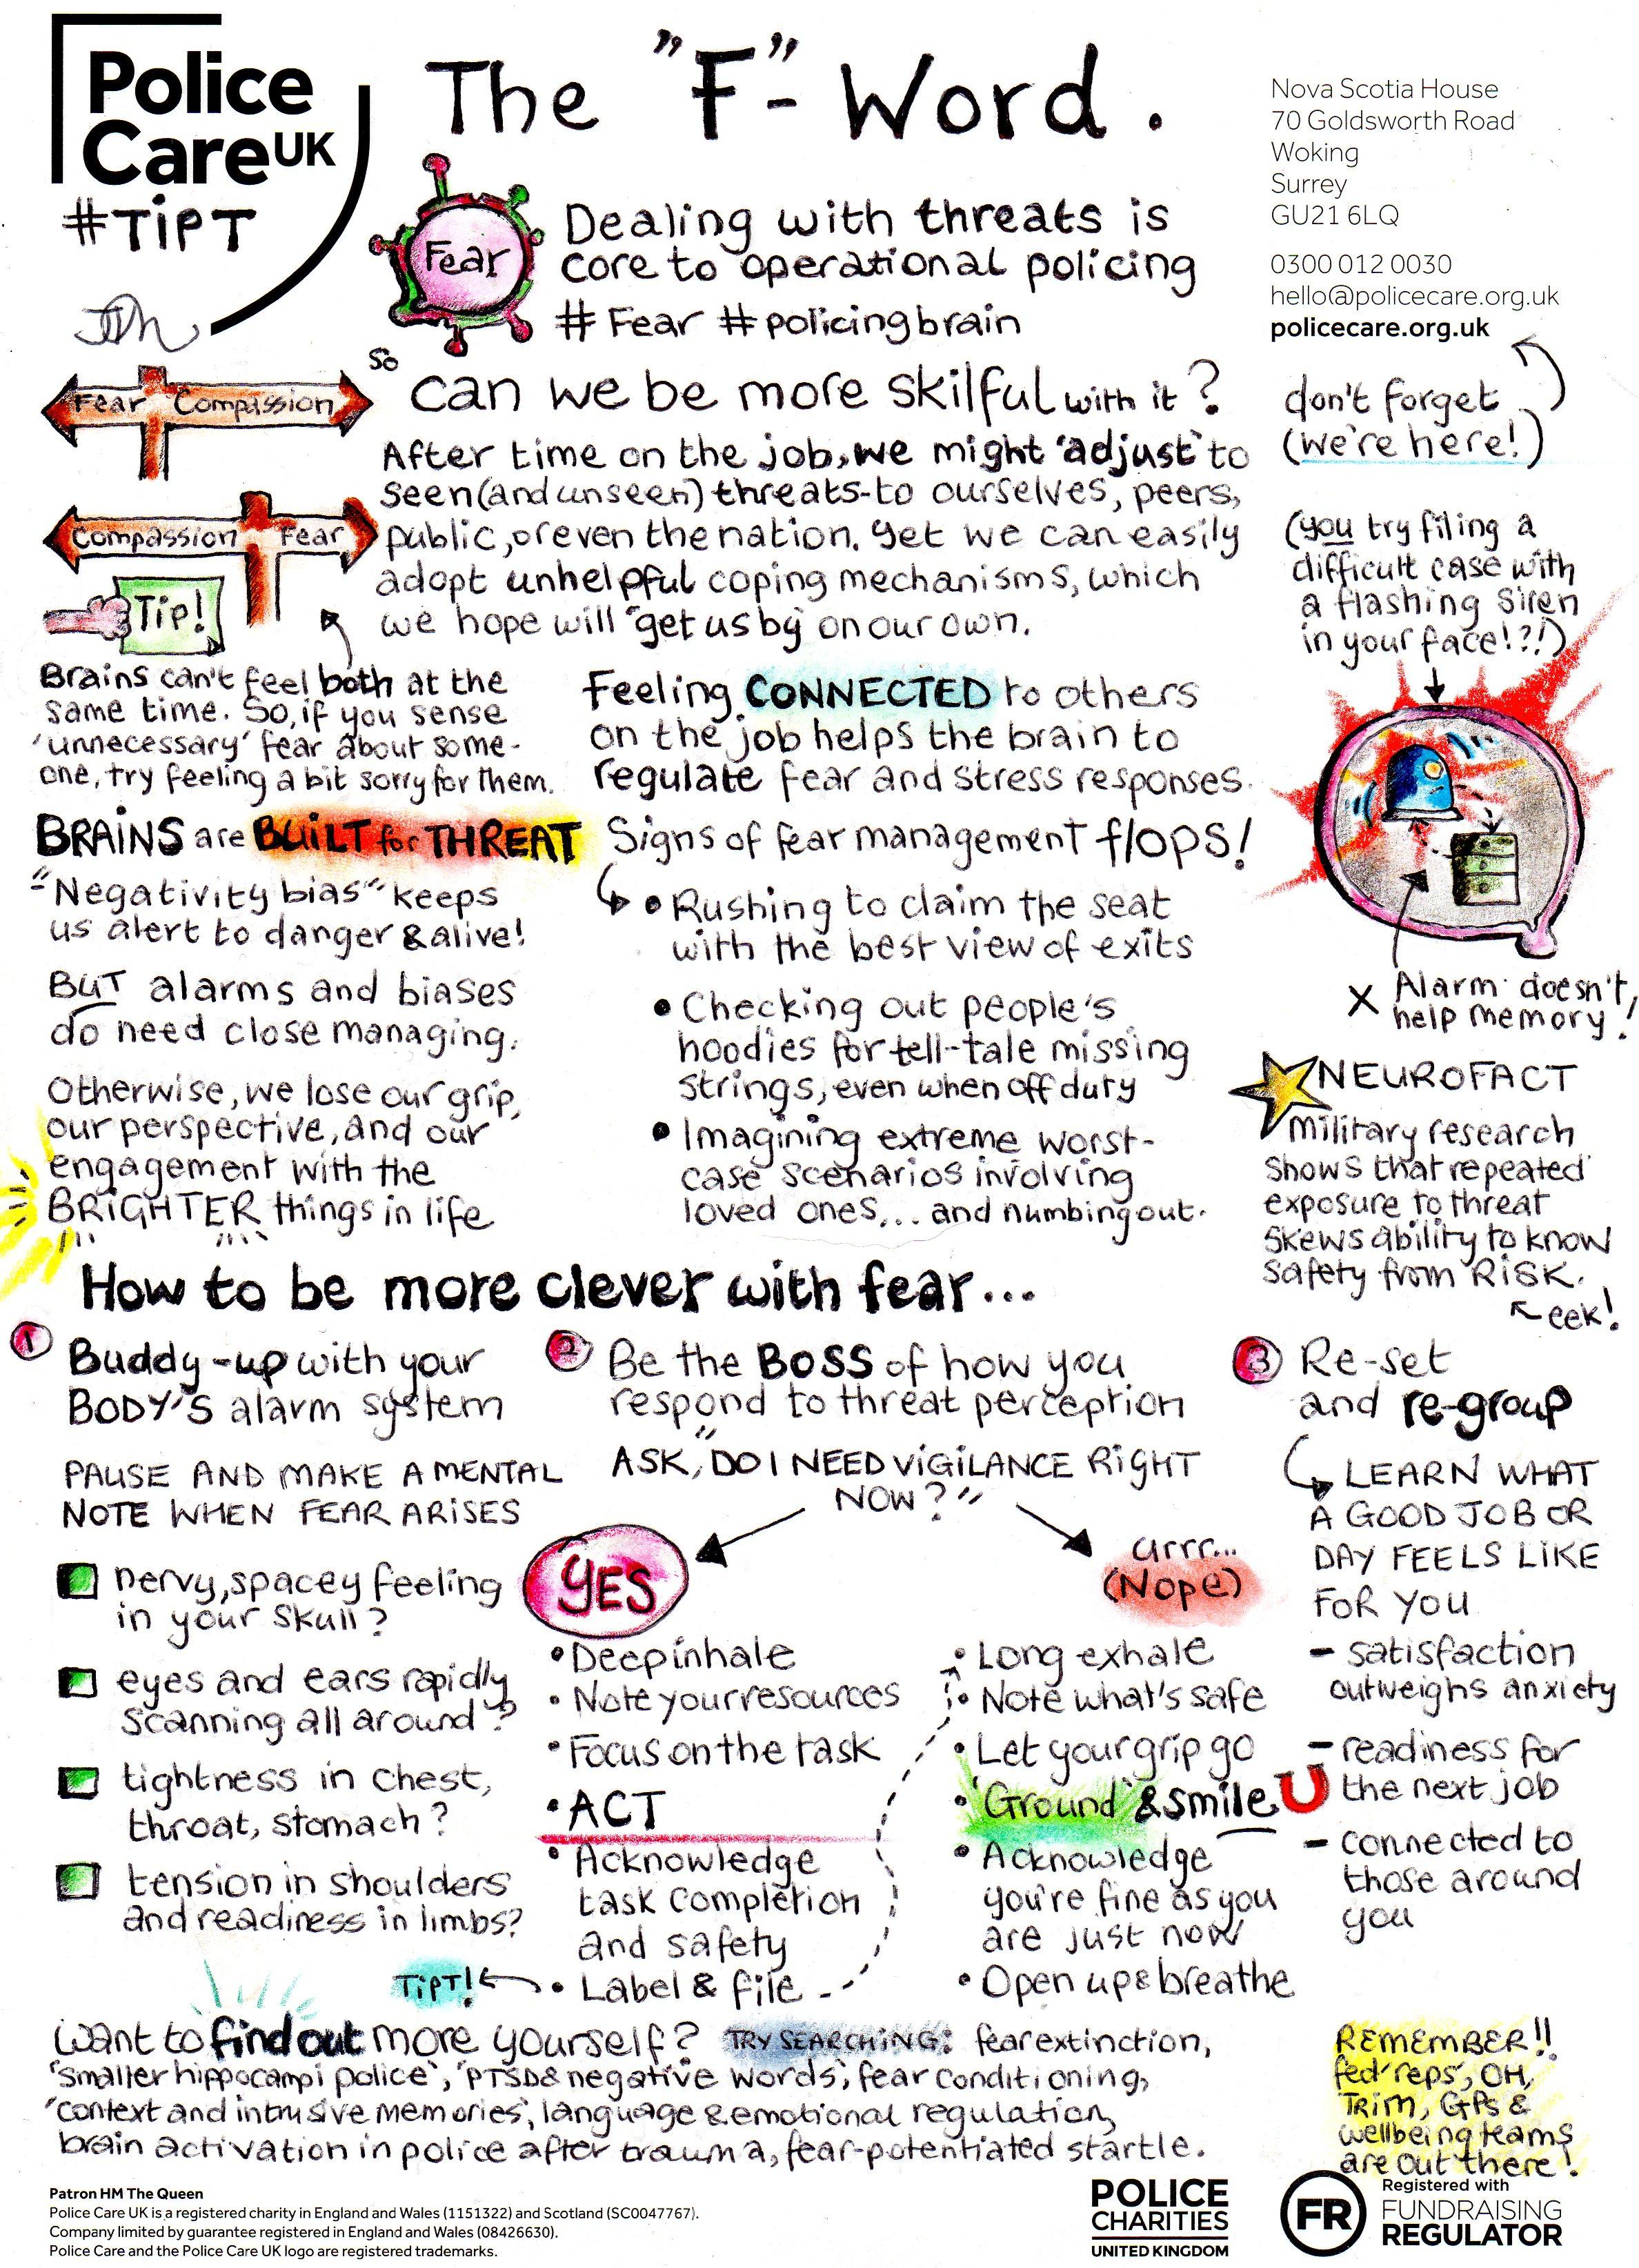 Police
Care UK
#TIPT
The "F"- Word.
Nova Scotia House
70 Goldsworth Road
Woking
Surrey
GU21 6LQ
0300 012 0030
hello@policecare.org.uk
policecare.org.uk
don't forget
(we're here!)
Fear
Dealing with threats is
core to operational policing
# Fear # policingbrain
Fear Compassion
Compassion Fear
Tip!
so can we be more skilful with it?
After time on the job, we might 'adjust' to
seen (and unseen) threats-to ourselves, peers,
public, or even the nation. Yet we can easily
adopt unhelpful coping mechanisms, which
we hope will "get us by" on our own.
(you try filing a
difficult case with
a flashing siren
in your face!?!)
Brains can't feel both at the
same time. So, if you sense
'unnecessary' fear about some-
one, try feeling a bit sorry for them.
Feeling CONNECTED to others
on the job helps the brain to
regulate fear and stress responses.
BRAINS are BUILT for THREAT
"Negativity bias" keeps
us alert to danger & alive!
BUT alarms and biases
do need close managing.
Otherwise, we lose our grip,
our perspective, and our
engagement with the
BRIGHTER things in life
Signs of fear management flops!
• Rushing to claim the seat
with the best view of exits
• Checking out people's
hoodies for tell-tale missing
strings, even when off duty
• Imagining extreme worst-
case scenarios involving
loved ones... and numbing out.
X Alarm doesn't
help memory!
NEUROFACT
Military research
shows that repeated
exposure to threat
skews ability to know
safety from RISK.
eek!
How to be more clever with fear...
1 Buddy-up with your
BODY'S alarm system
PAUSE AND MAKE A MENTAL
NOTE WHEN FEAR ARISES
nervy, spacey feeling
in your skull?
eyes and ears rapidly
scanning all around?
tightness in chest,
throat, stomach?
tension in shoulders
and readiness in limbs?
2 Be the BOSS of how you
respond to threat perception
ASK, "DO I NEED VIGILANCE RIGHT
NOW?"
YES
• Deep inhale
• Note your resources
• Focus on the task
• ACT
• Acknowledge
task completion
and safety
TIPT! • Label & file
urrr...
(Nope)
• Long exhale
• Note what's safe
• Let your grip go
• 'Ground' & smile
• Acknowledge
you're fine as you
are just now
• Open up & breathe
3 Re-set
and re-group
LEARN WHAT
A GOOD JOB OR
DAY FEELS LIKE
FOR YOU
- satisfaction
outweighs anxiety
- readiness for
the next job
- connected to
those around
you
Want to find out more yourself? TRY SEARCHING: fear extinction,
'smaller hippocampi police', 'PTSD & negative words', fear conditioning,
'context and intrusive memories', language & emotional regulation,
brain activation in police after trauma, fear-potentiated startle.
REMEMBER!!
fed 'reps', OH,
TRiM, GPs &
wellbeing teams
are out there!
Patron HM The Queen
Police Care UK is a registered charity in England and Wales (1151322) and Scotland (SC0047767).
Company limited by guarantee registered in England and Wales (08426630).
Police Care and the Police Care UK logo are registered trademarks.
POLICE
CHARITIES
UNITED KINGDOM
FR
Registered with
FUNDRAISING
REGULATOR